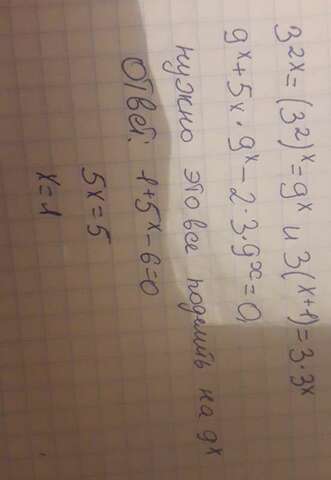 3²ˣ = (3²)ˣ = 9ˣ и 3(x+1) = 3·3ˣ
9ˣ + 5x · 9ˣ - 2·3·9ˣ = 0
нужно это все поделить на 9ˣ
Ответ: 1+5ˣ - 6 = 0
5x = 5
x = 1